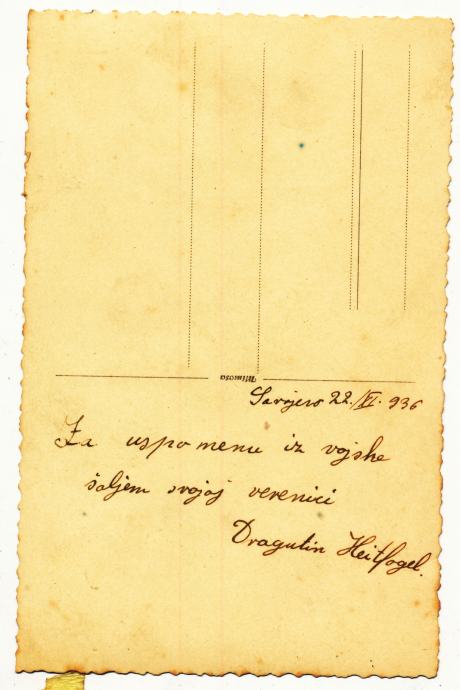 Mimosa
Sarajevo 22./VI. 936
Za uspomenu iz vojske
šaljem svojoj verenici
Dragutin Heitfogel.